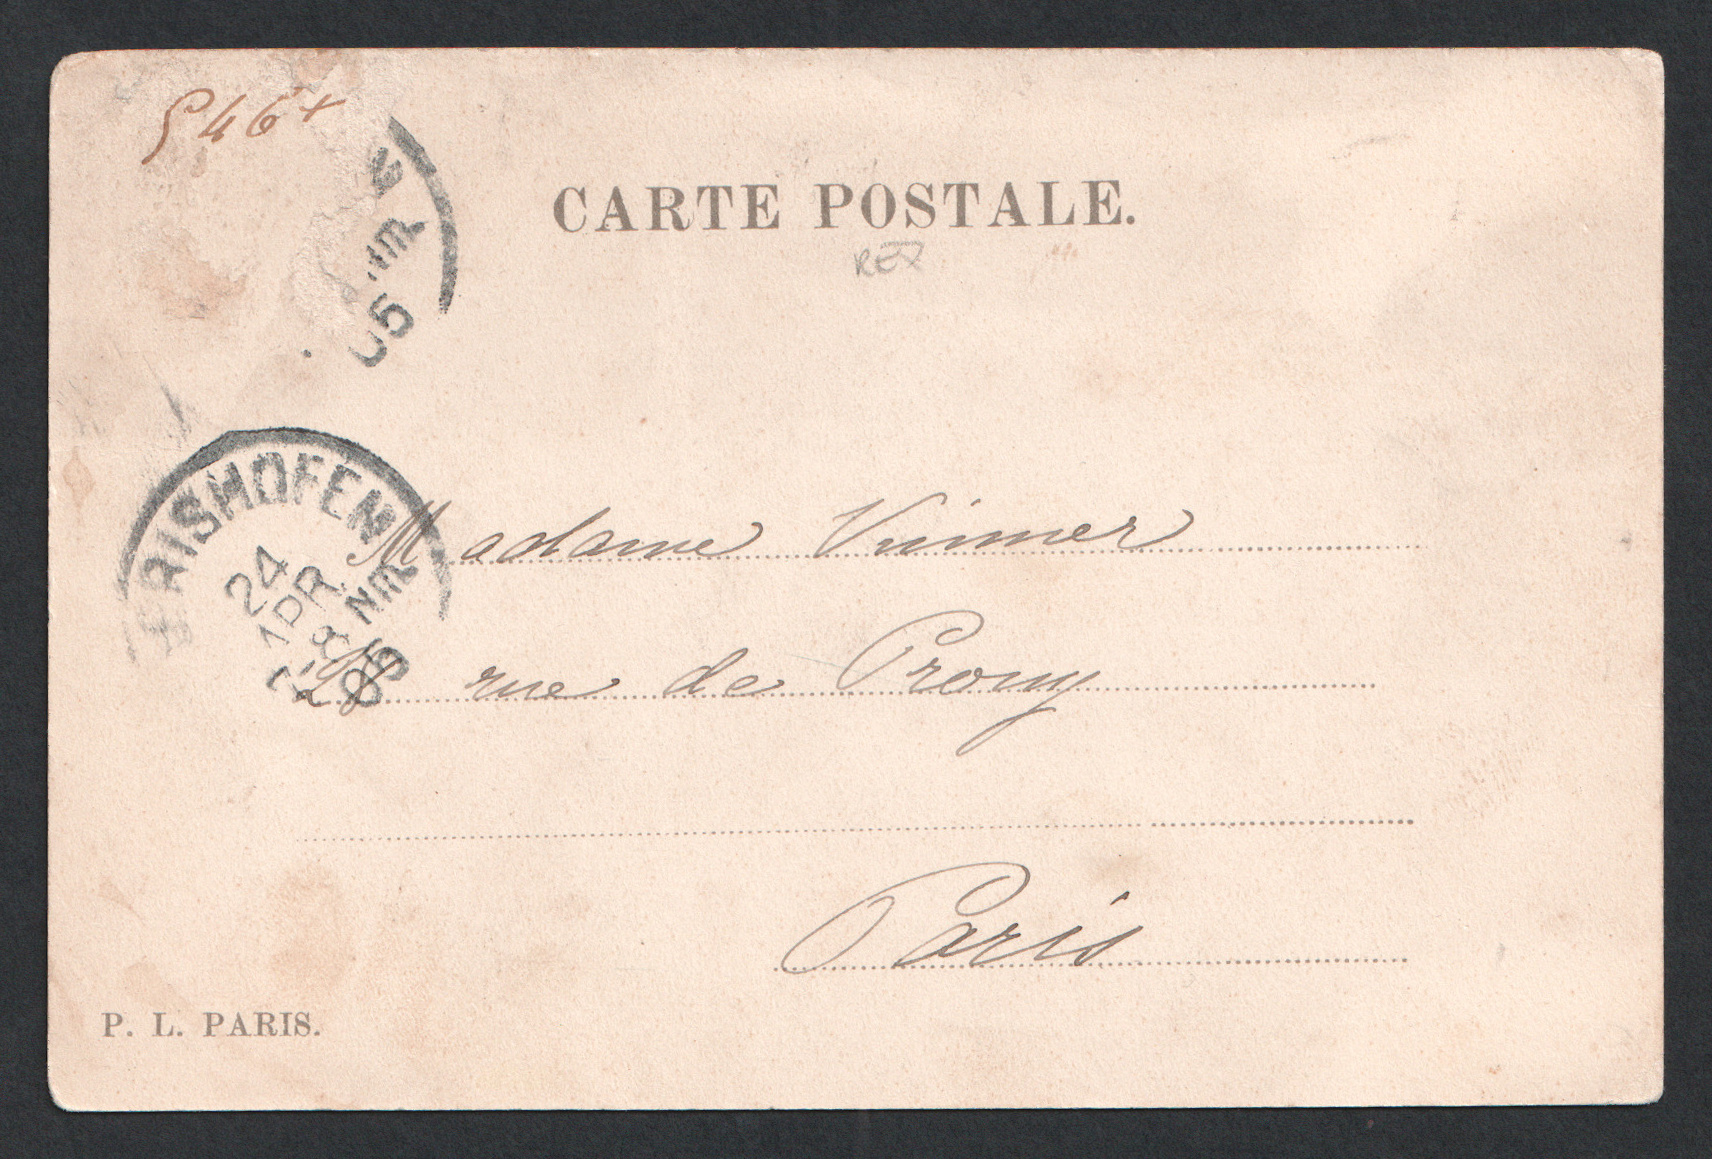 546+
CARTE POSTALE.
REZ
NM.
05
RISHOFEN
24
APR.
8 NM.
05
Madame
rue de Prony
Paris
P. L. PARIS.